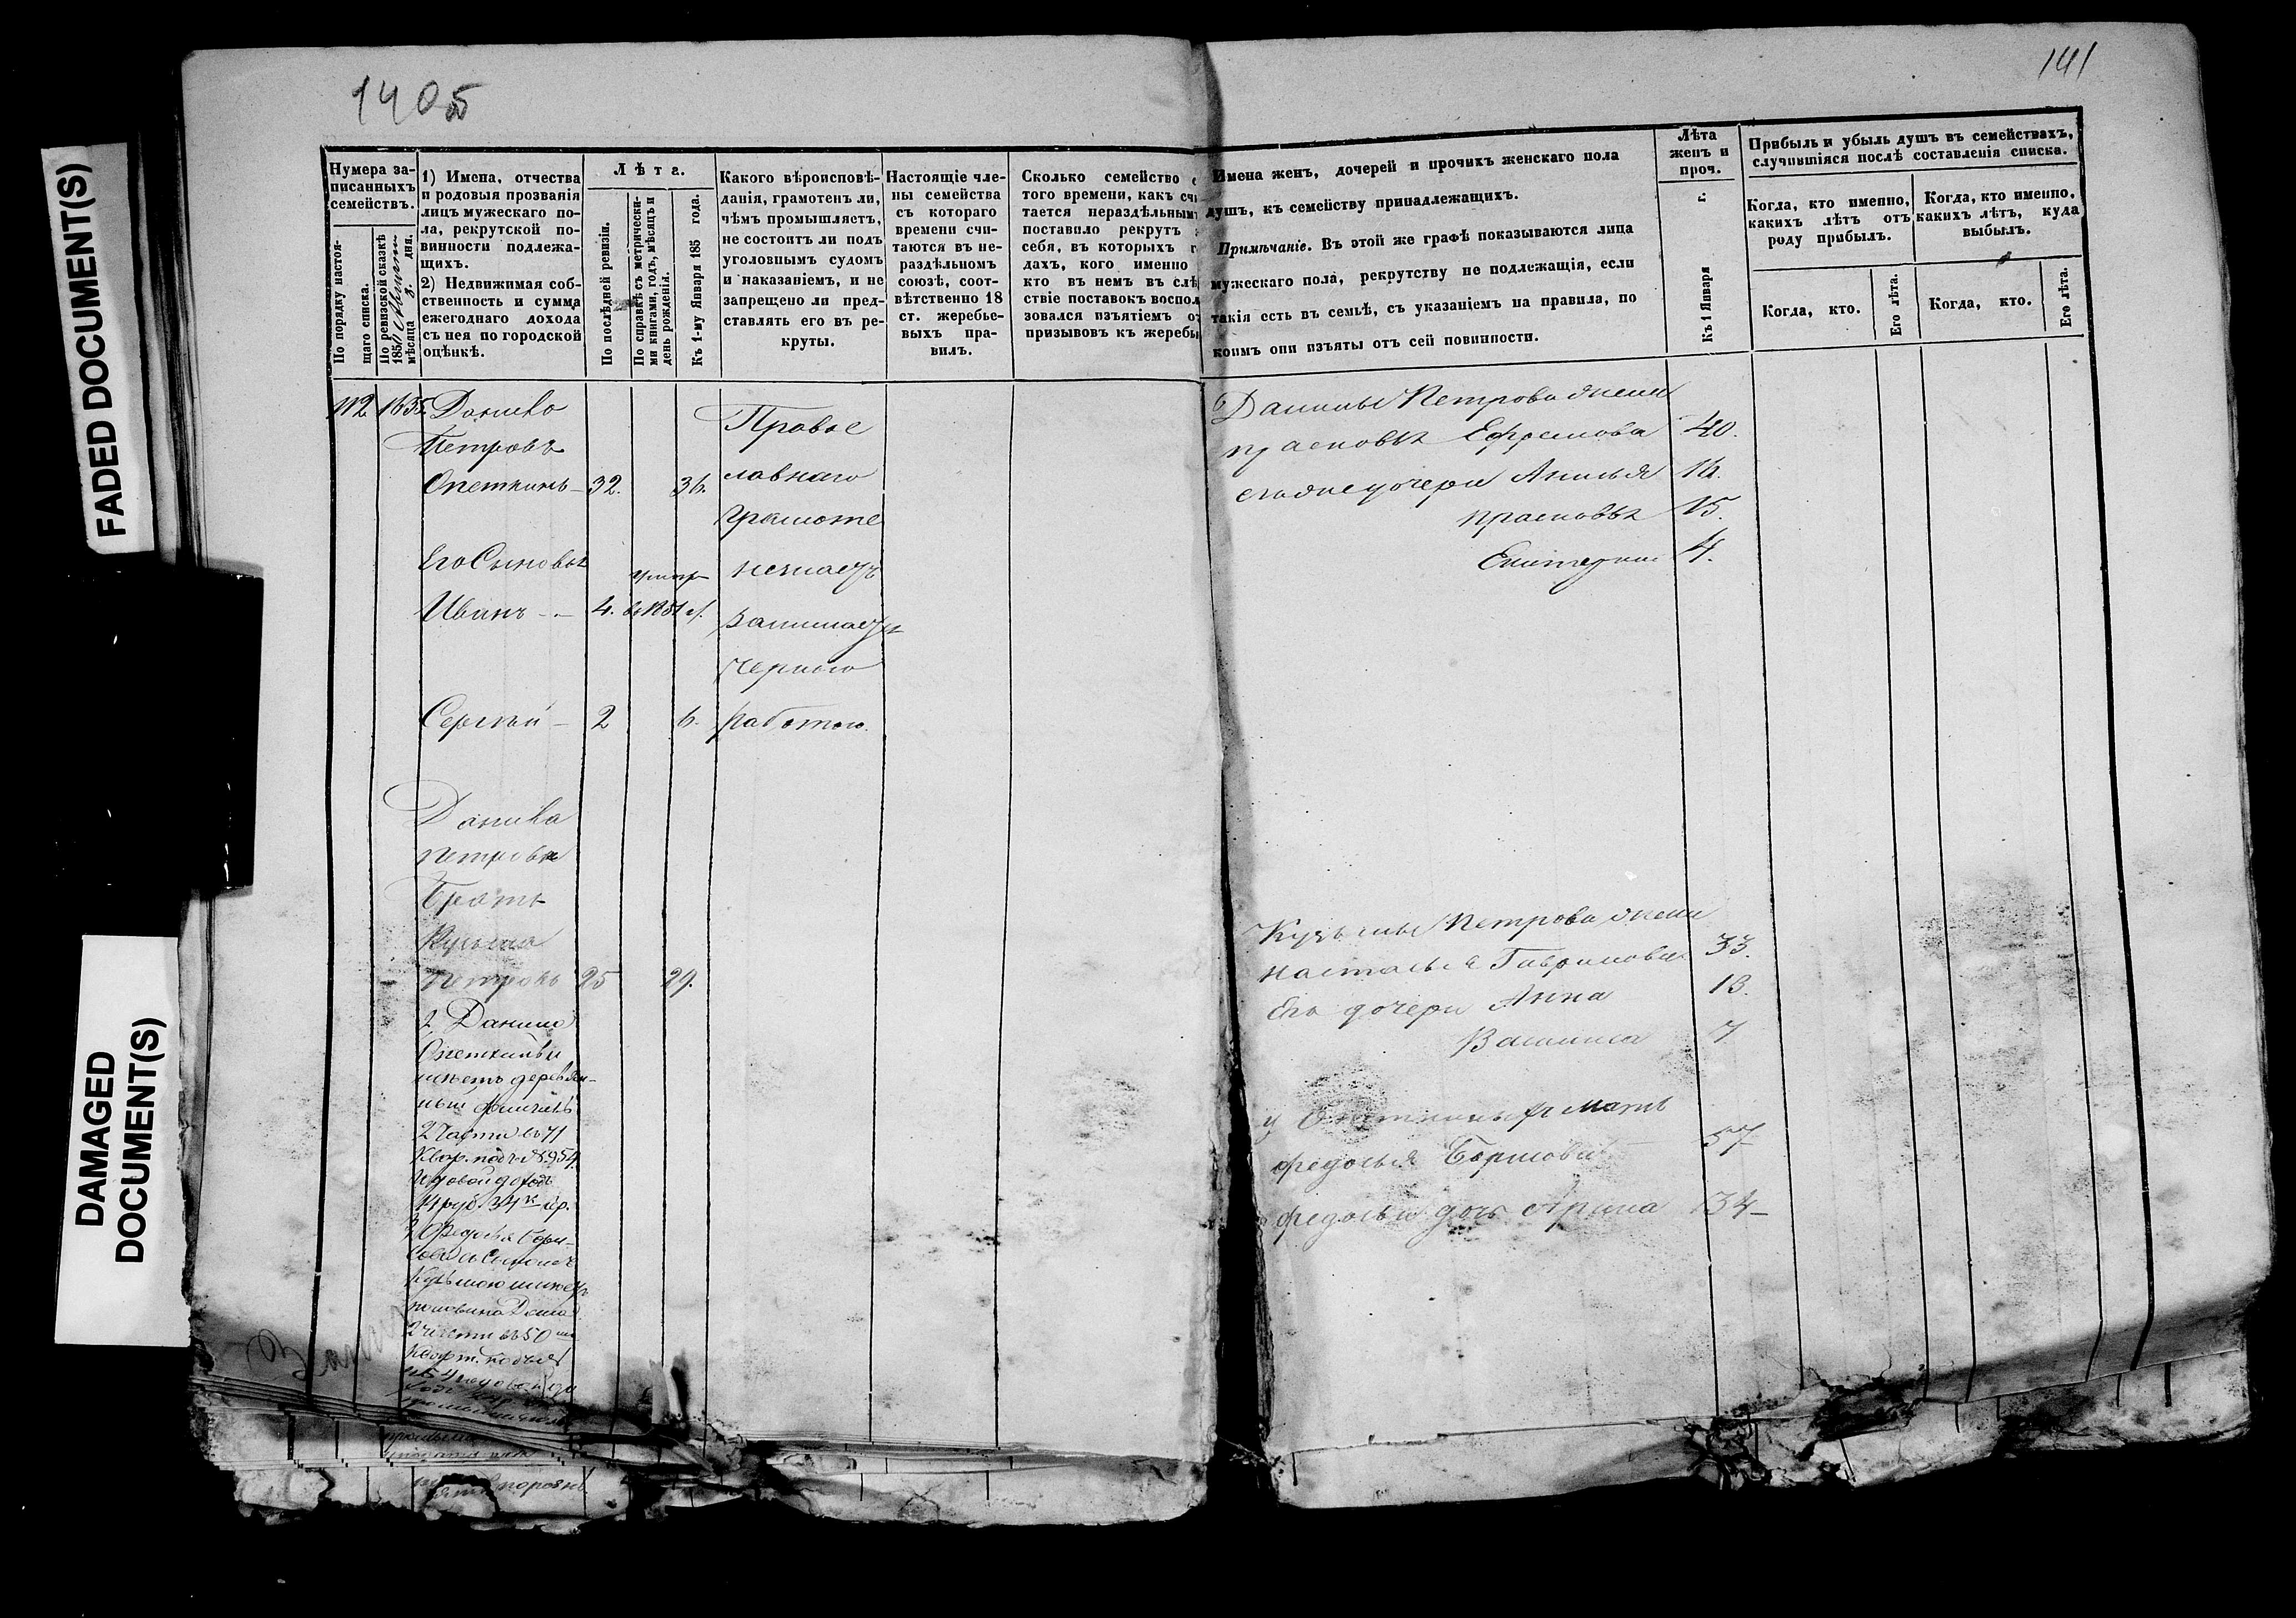 FADED DOCUMENT(S)
DAMAGED
DOCUMENT(S)
1405
141
Нумера за-
писанныхъ
семействъ.
По порядку настоя-
щаго списка.
По ревизской сказкѣ
185
мѣсяца дня.
1) Имена, отчества
и родовыя прозванія
лицъ мужескаго по-
ла, рекрутской по-
винности подлежа-
щихъ.
2) Недвижимая соб-
ственность и сумма
ежегоднаго дохода
съ нея по городской
оцѣнкѣ.
Лѣта.
По послѣдней ревизіи.
По справкѣ съ метрически-
ми книгами, годъ, мѣсяцъ и
день рожденія.
Къ 1-му Января 185 года.
Какого вѣроисповѣ-
данія, грамотенъ ли,
чѣмъ промышляетъ,
не состоитъ ли подъ
уголовнымъ судомъ
и наказаніемъ, и не
запрещено ли пред-
ставлять его въ ре-
круты.
Настоящіе чле-
ны семейства
съ котораго
времени счи-
таются въ не-
раздѣльномъ
союзѣ, соот-
вѣтственно 18
ст. жеребье-
выхъ пра-
вилъ.
Сколько семейство
того времени, какъ счи
тается нераздѣльным
поставило рекрутъ
себя, въ которыхъ г
дахъ, кого именно
кто въ немъ въ слѣ
ствіе поставокъ воспол
зовался изъятіемъ от
призывовъ къ жеребь
Имена женъ, дочерей и прочихъ женскаго пола
душъ, къ семейству принадлежащихъ.
Примѣчаніе. Въ этой же графѣ показываются лица
мужескаго пола, рекрутству не подлежащія, если
такія есть въ семьѣ, съ указаніемъ на правила, по
коимъ они изъяты отъ сей повинности.
Лѣта
женъ и
проч.
Къ 1 Января г.
Прибыль и убыль душъ въ семействахъ,
случившіяся послѣ составленія списка.
Когда, кто именно,
какихъ лѣтъ отъ
роду прибылъ.
Когда, кто именно,
какихъ лѣтъ, куда
выбылъ.
Когда, кто.
Его лѣта.
Когда, кто.
Его лѣта.
112 1635. Данило
Петровъ
Опеткинъ 32. 36.
Его Сыновья
Иванъ 4. умеръ въ 1851 г.
Сергѣй 2 6.
Православнаго
грамоте
незнаетъ
занимаетъ
черною
работою.
Данила
Петрова
Братъ
Кузьма
Петровъ 25 29.
2 Данило
Опеткинъ
имѣетъ деревян-
ный флигель
2 части въ 71
Квар. подъ № 954.
годовой доходъ
14 руб. 34 к. сер.
Федосья Бори-
сова съ Сыномъ
Кузьмою имѣетъ
половина Дома
2 части въ 50
Кварт. подъ №
Данилы Петрова жена
прасковья Ефремова 40.
егоже дочери Анисья 16.
прасковья 15.
Екатерина 4.
Кузьмы Петрова жена
настасья Гаврилова 33.
Его дочери Анна 13.
Василиса 7
у Опеткиныхъ мать
федосья Борисова 57
федосьи дочь Арина 34